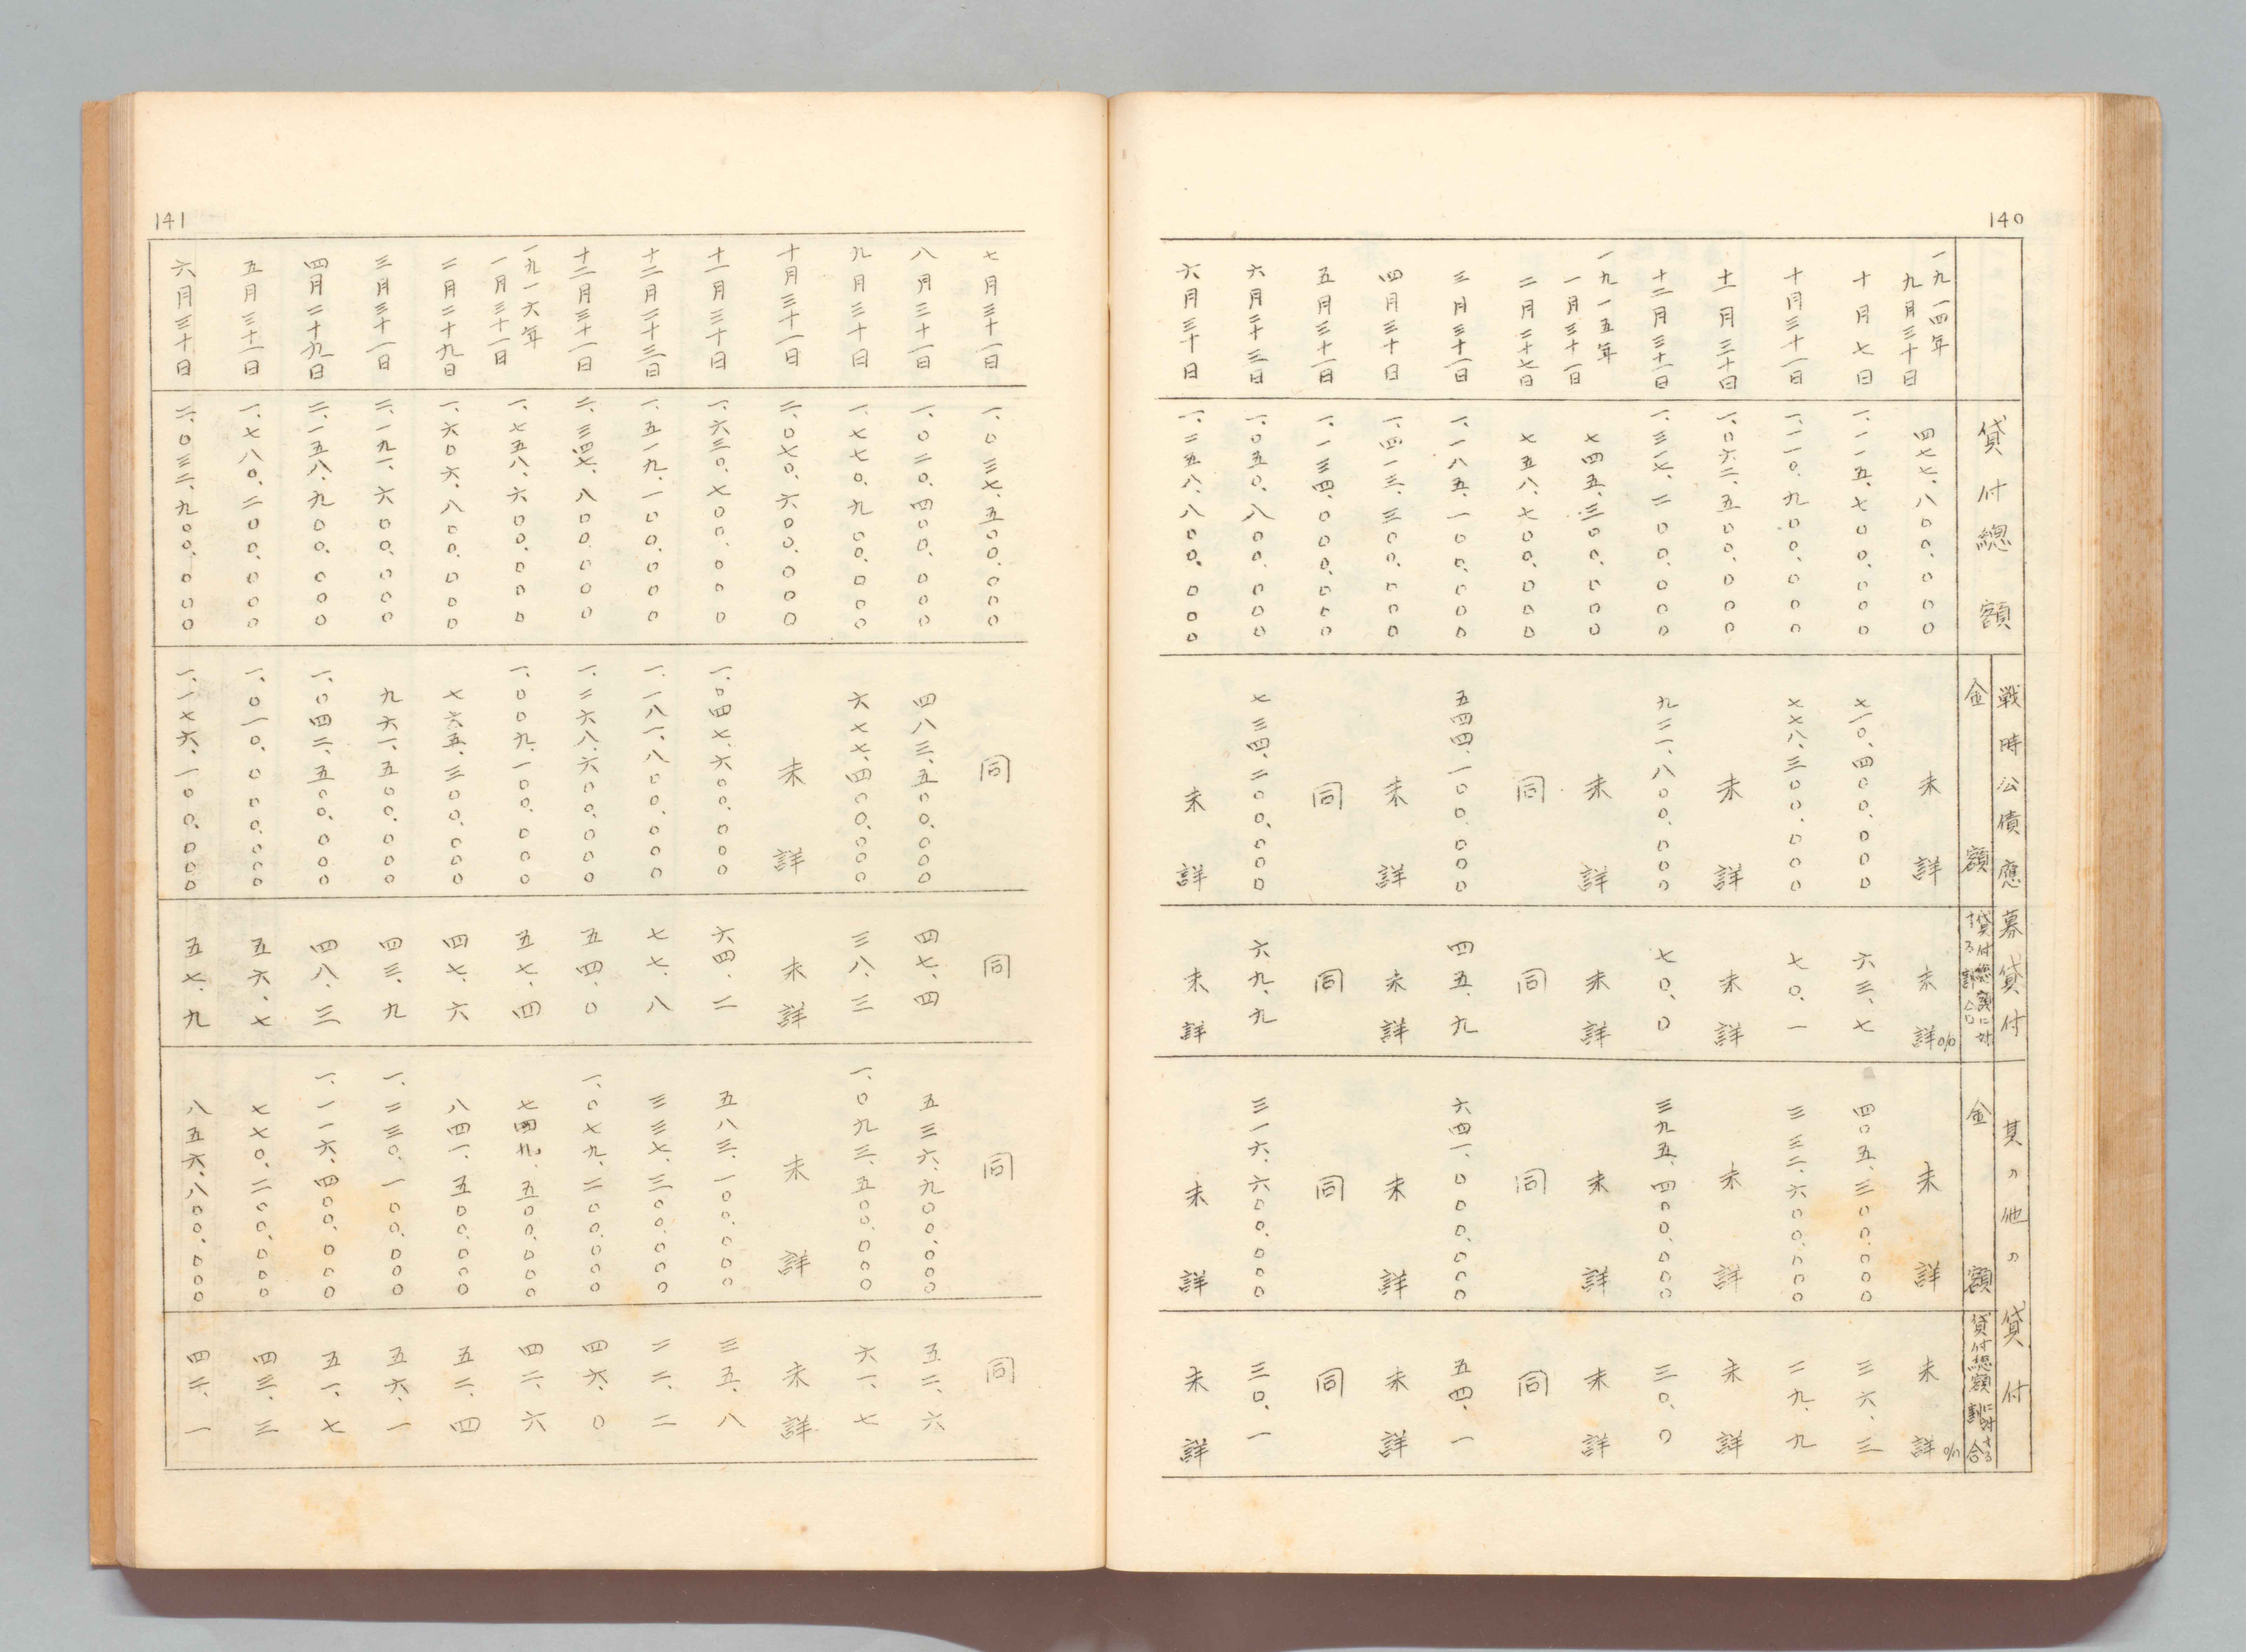 140
貸付總額
戦時公債應募貸付
金額
貸付總額に対する割合
其ノ他ノ貸付
金額
貸付總額に対する割合
一九一四年
九月三十日 四七七、八〇〇、〇〇〇 未詳 未詳% 未詳 未詳%
十月七日 一、一一五、七〇〇、〇〇〇 七一〇、四〇〇、〇〇〇 六三、七 四〇五、三〇〇、〇〇〇 三六、三
十月三十一日 一、一一〇、九〇〇、〇〇〇 七七八、三〇〇、〇〇〇 七〇、一 三三二、六〇〇、〇〇〇 二九、九
十一月三十日 一、〇六二、五〇〇、〇〇〇 未詳 未詳 未詳 未詳
十二月三十一日 一、三一七、二〇〇、〇〇〇 九二一、八〇〇、〇〇〇 七〇、〇 三九五、四〇〇、〇〇〇 三〇、〇
一九一五年
一月三十一日 七四五、三〇〇、〇〇〇 未詳 未詳 未詳 未詳
二月二十七日 七五八、七〇〇、〇〇〇 同 同 同 同
三月三十一日 一、一八五、一〇〇、〇〇〇 五四四、一〇〇、〇〇〇 四五、九 六四一、〇〇〇、〇〇〇 五四、一
四月三十日 一、四一三、三〇〇、〇〇〇 未詳 未詳 未詳 未詳
五月三十一日 一、一三四、〇〇〇、〇〇〇 同 同 同 同
六月二十三日 一、〇五〇、八〇〇、〇〇〇 七三四、二〇〇、〇〇〇 六九、九 三一六、六〇〇、〇〇〇 三〇、一
六月三十日 一、二五八、八〇〇、〇〇〇 未詳 未詳 未詳 未詳
141
七月三十一日 一、〇三七、五〇〇、〇〇〇 同 同 同 同
八月三十一日 一、〇二〇、四〇〇、〇〇〇 四八三、五〇〇、〇〇〇 四七、四 五三六、九〇〇、〇〇〇 五二、六
九月三十日 一、七七〇、九〇〇、〇〇〇 六七七、四〇〇、〇〇〇 三八、三 一、〇九三、五〇〇、〇〇〇 六一、七
十月三十一日 二、〇七〇、六〇〇、〇〇〇 未詳 未詳 未詳 未詳
十一月三十日 一、六三〇、七〇〇、〇〇〇 一、〇四七、六〇〇、〇〇〇 六四、二 五八三、一〇〇、〇〇〇 三五、八
十二月二十三日 一、五一九、一〇〇、〇〇〇 一、一八一、八〇〇、〇〇〇 七七、八 三三七、三〇〇、〇〇〇 二二、二
十二月三十一日 二、三四七、八〇〇、〇〇〇 一、二六八、六〇〇、〇〇〇 五四、〇 一、〇七九、二〇〇、〇〇〇 四六、〇
一九一六年
一月三十一日 一、七五八、六〇〇、〇〇〇 一、〇〇九、一〇〇、〇〇〇 五七、四 七四九、五〇〇、〇〇〇 四二、六
二月二十九日 一、六〇六、八〇〇、〇〇〇 七六五、三〇〇、〇〇〇 四七、六 八四一、五〇〇、〇〇〇 五二、四
三月三十一日 二、一九一、六〇〇、〇〇〇 九六一、五〇〇、〇〇〇 四三、九 一、二三〇、一〇〇、〇〇〇 五六、一
四月二十九日 二、一五八、九〇〇、〇〇〇 一、〇四二、五〇〇、〇〇〇 四八、三 一、一一六、四〇〇、〇〇〇 五一、七
五月三十一日 一、七八〇、二〇〇、〇〇〇 一、〇一〇、〇〇〇、〇〇〇 五六、七 七七〇、二〇〇、〇〇〇 四三、三
六月三十日 二、〇三二、九〇〇、〇〇〇 一、一七六、一〇〇、〇〇〇 五七、九 八五六、八〇〇、〇〇〇 四二、一